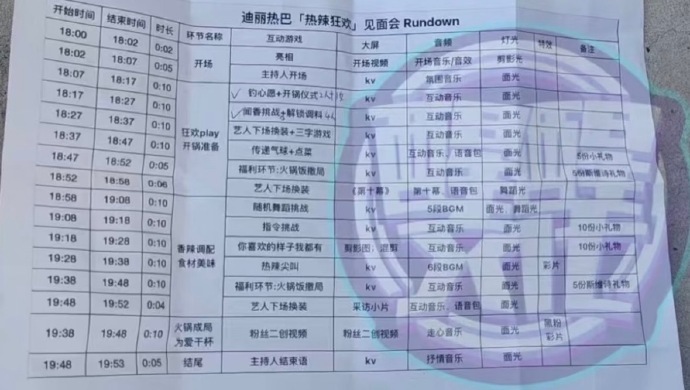 迪丽热巴「热辣狂欢」见面会 Rundown
开始时间 结束时间 时长 环节名称 互动游戏 大屏 音频 灯光 特效 备注
18:00 18:02 0:02 开场 亮相 开场视频 开场音乐/音效 剪影光
18:02 18:07 0:05 主持人开场 kv 氛围音乐 面光
18:07 18:17 0:10 狂欢play 开锅准备 钓心愿+开锅仪式 kv 互动音乐 面光
18:17 18:27 0:10 闻香挑战+解锁调料 kv 互动音乐 面光
18:27 18:37 0:10 艺人下场换装+三字游戏 kv 互动音乐 面光
18:37 18:47 0:10 传递气球+点菜 kv 互动音乐、语音包 面光 5份小礼物
18:47 18:52 0:05 福利环节:火锅饭撒局 kv 互动音乐 面光 5份斯维诗礼物
18:52 18:58 0:06 艺人下场换装 《第十幕》 第十幕、语音包 舞蹈光
18:58 19:08 0:10 香辣调配 食材美味 随机舞蹈挑战 kv 5段BGM 面光、舞蹈光
19:08 19:18 0:10 指令挑战 kv 互动音乐 面光 10份小礼物
19:18 19:28 0:10 你喜欢的样子我都有 剪影图、混剪 互动音乐 面光 10份小礼物
19:28 19:38 0:10 热辣尖叫 kv 6段BGM 面光 彩片
19:38 19:48 0:10 福利环节:火锅饭撒局 kv 互动音乐 面光 5份斯维诗礼物
19:48 19:52 0:04 艺人下场换装 采访小片 互动音乐、语音包 面光
19:38 19:48 0:10 火锅成局 为爱干杯 粉丝二创视频 粉丝二创视频 走心音乐 面光 彩片
19:48 19:53 0:05 结尾 主持人结束语 kv 抒情音乐 面光